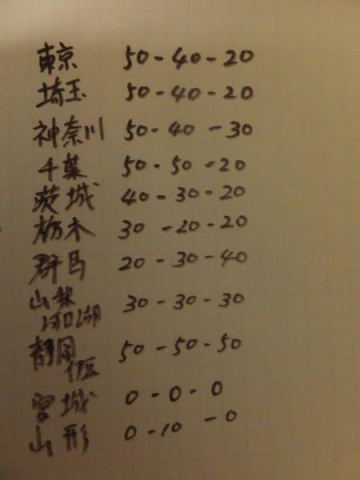 東京 50-40-20
埼玉 50-40-20
神奈川 50-40-30
千葉 50-50-20
茨城 40-30-20
栃木 30-20-20
群馬 20-30-40
山梨 30-30-30
河口湖
静岡 50-50-50
伊豆
宮城 0-0-0
山形 0-10-0